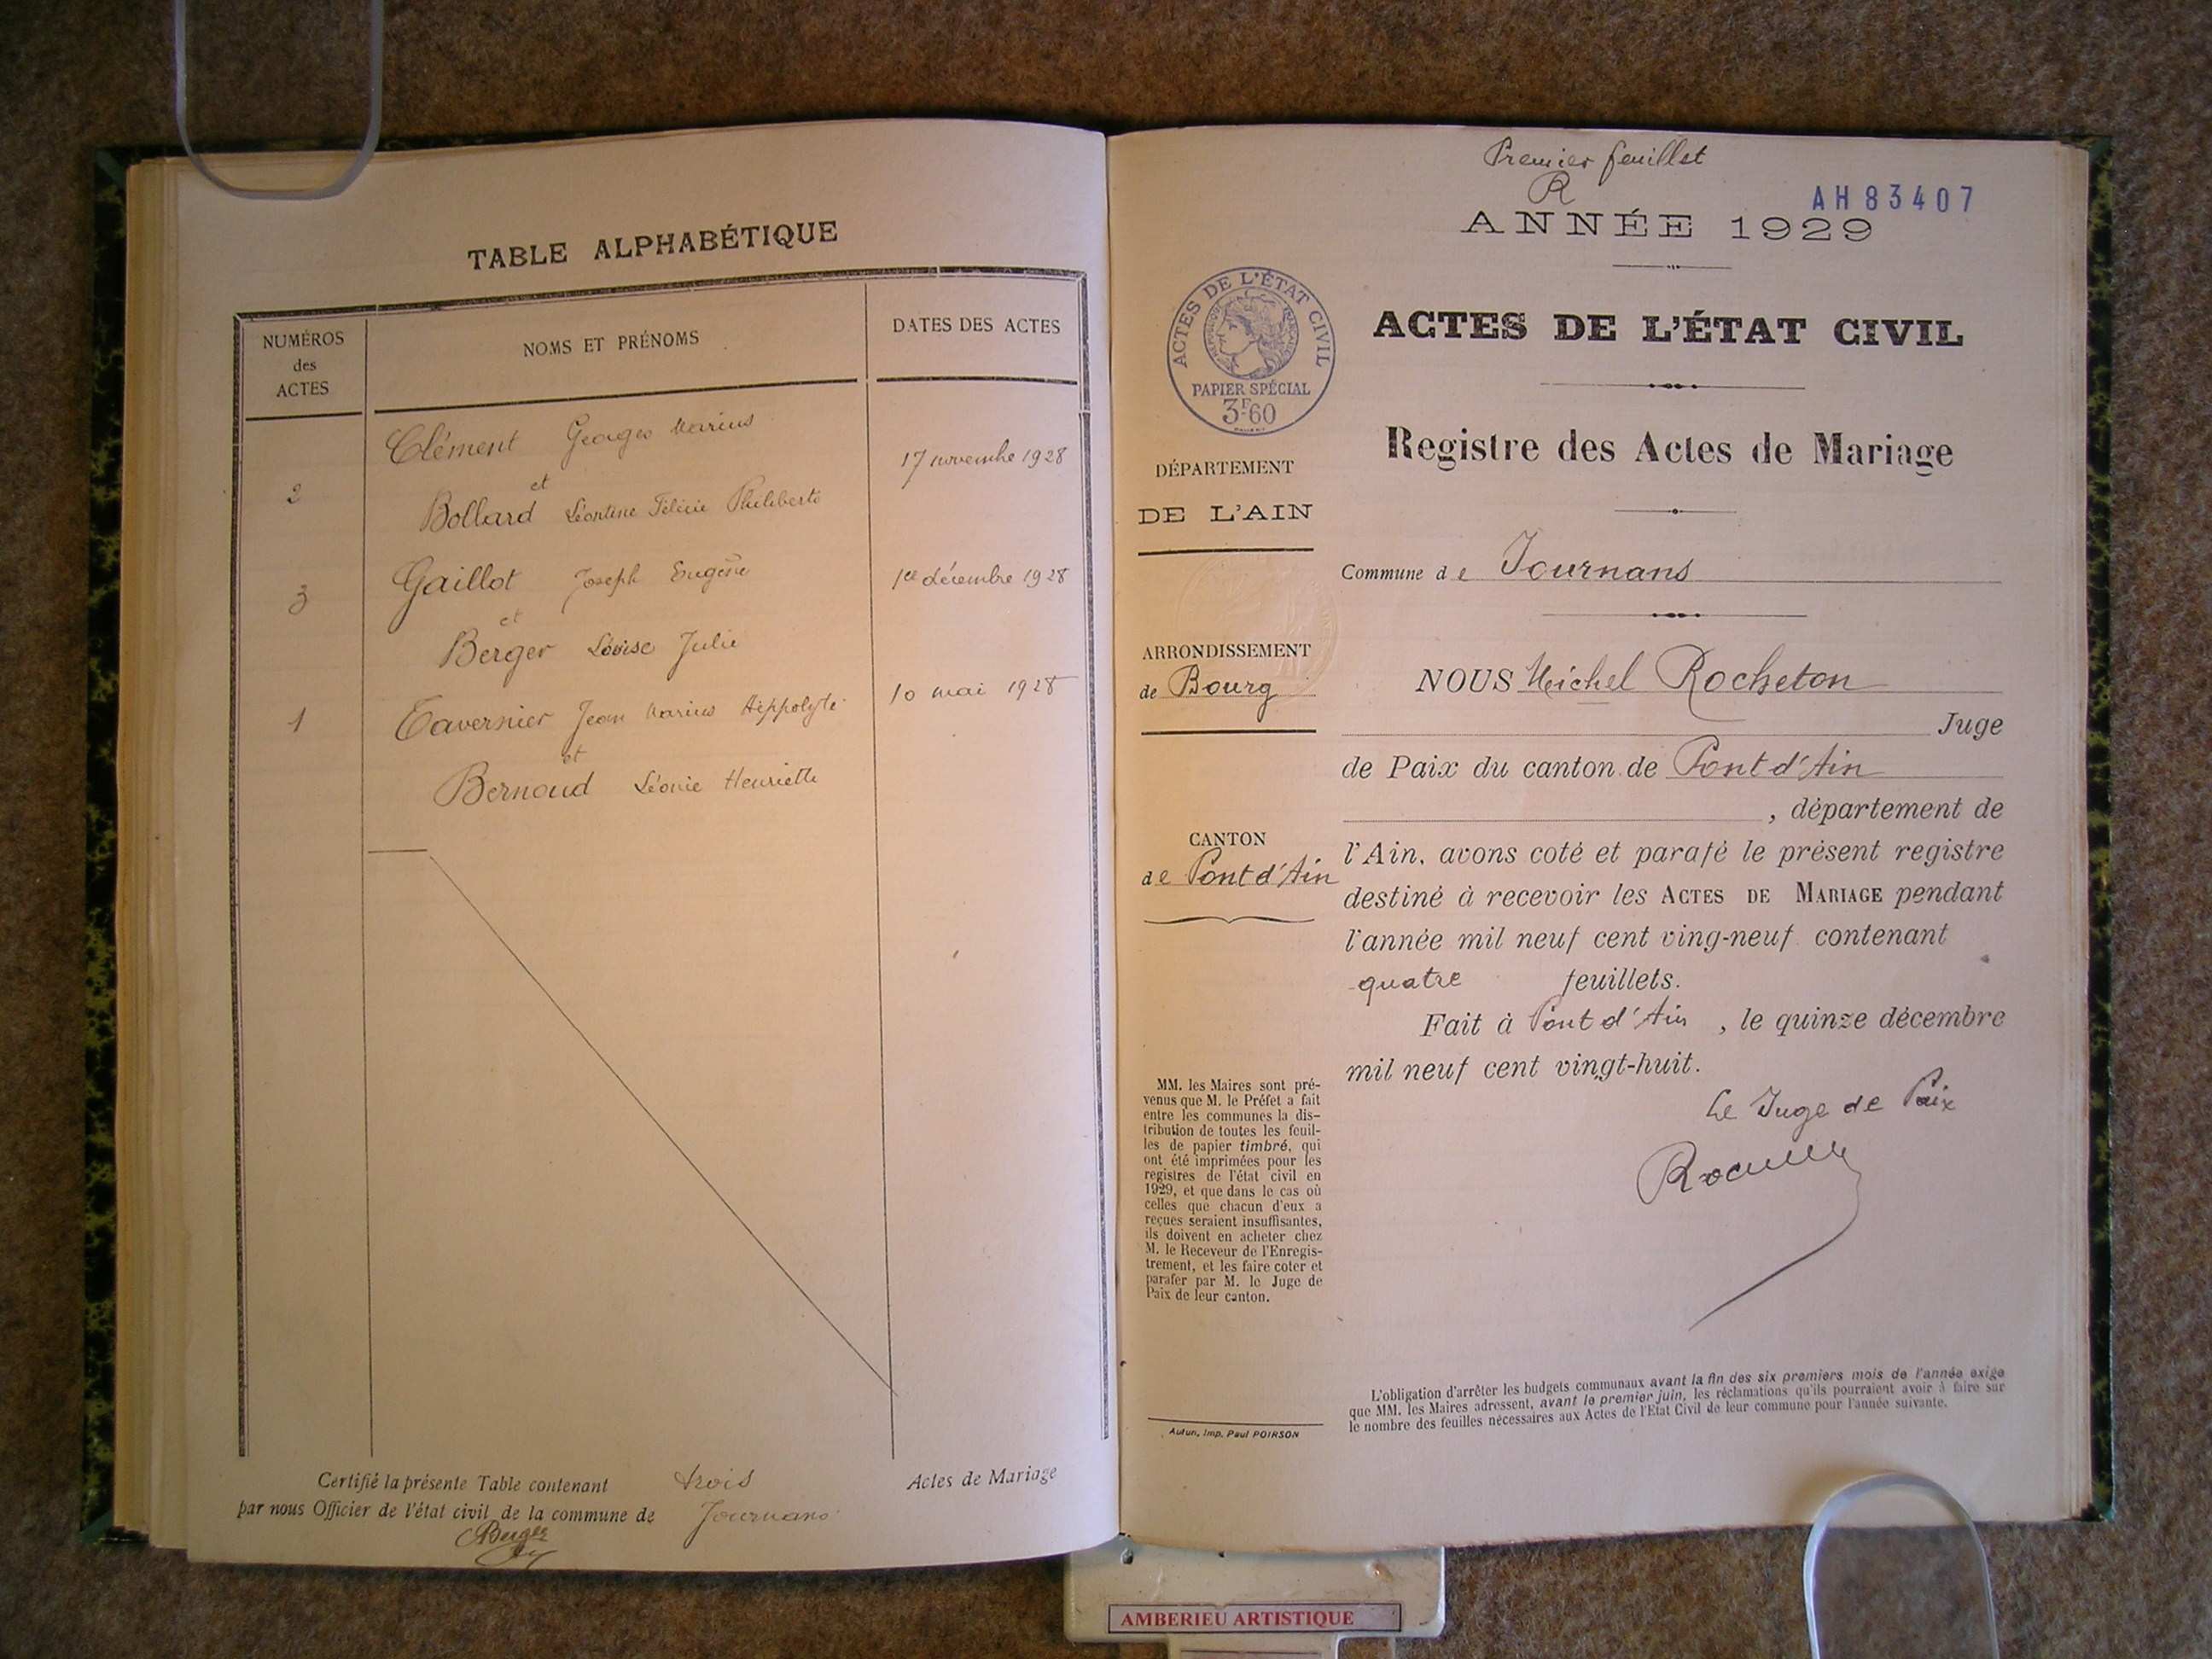 TABLE ALPHABÉTIQUE
NUMÉROS
des
ACTES
NOMS ET PRÉNOMS
DATES DES ACTES
Clément Georges Marius
17 novembre 1928
et
2
Bollard Léontine Félicie Philiberte
Gaillot Joseph Eugène
1er décembre 1928
3
et
Berger Louise Julie
10 mai 1928
1
Tavernier Jean Marius Hippolyte
et
Bernoud Léonie Henriette
Certifié la présente Table contenant trois Actes de Mariage
par nous Officier de l'état civil de la commune de Journans
Berger
Premier feuillet
R
AH 83407
ANNÉE 1929
ACTES DE L'ÉTAT CIVIL
RÉPUBLIQUE FRANÇAISE
PAPIER SPÉCIAL
3F60
ACTES DE L'ÉTAT CIVIL
Registre des Actes de Mariage
DÉPARTEMENT
DE L'AIN
Commune de Journans
ARRONDISSEMENT
de Bourg
NOUS Michel Rocheton
Juge
de Paix du canton de Pont d'Ain
, département de
CANTON
de Pont d'Ain
l'Ain, avons coté et parafé le présent registre
destiné à recevoir les ACTES DE MARIAGE pendant
l'année mil neuf cent ving-neuf contenant
quatre feuillets.
Fait à Pont d'Ain, le quinze décembre
mil neuf cent vingt-huit.
Le Juge de Paix
MM. les Maires sont pré-
venus que M. le Préfet a fait
entre les communes la dis-
tribution de toutes les feuil-
les de papier timbré, qui
ont été imprimées pour les
registres de l'état civil en
1929, et que dans le cas où
celles que chacun d'eux a
reçues seraient insuffisantes,
ils doivent en acheter chez
M. le Receveur de l'Enregis-
trement, et les faire coter et
parafer par M. le Juge de
Paix de leur canton.
L'obligation d'arrêter les budgets communaux avant la fin des six premiers mois de l'année exige
que MM. les Maires adressent, avant le premier juin, les réclamations qu'ils pourraient avoir à faire sur
le nombre des feuilles nécessaires aux Actes de l'Etat Civil de leur commune pour l'année suivante.
Autun, Imp. Paul POIRSON
AMBERIEU ARTISTIQUE